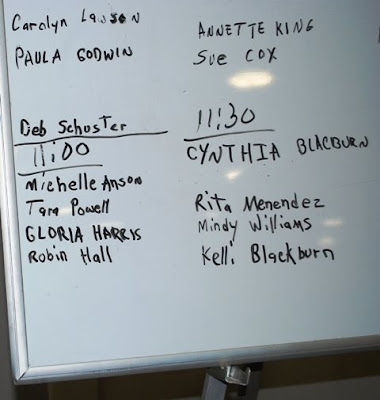 Carolyn Lawson
PAULA GODWIN
Deb Schuster
11:00
Michelle Anson
Tara Powell
GLORIA HARRIS
Robin Hall
ANNETTE KING
Sue COX
11:30
CYNTHIA BLACBURN
Rita Menendez
Mindy Williams
Kelli Blackburn